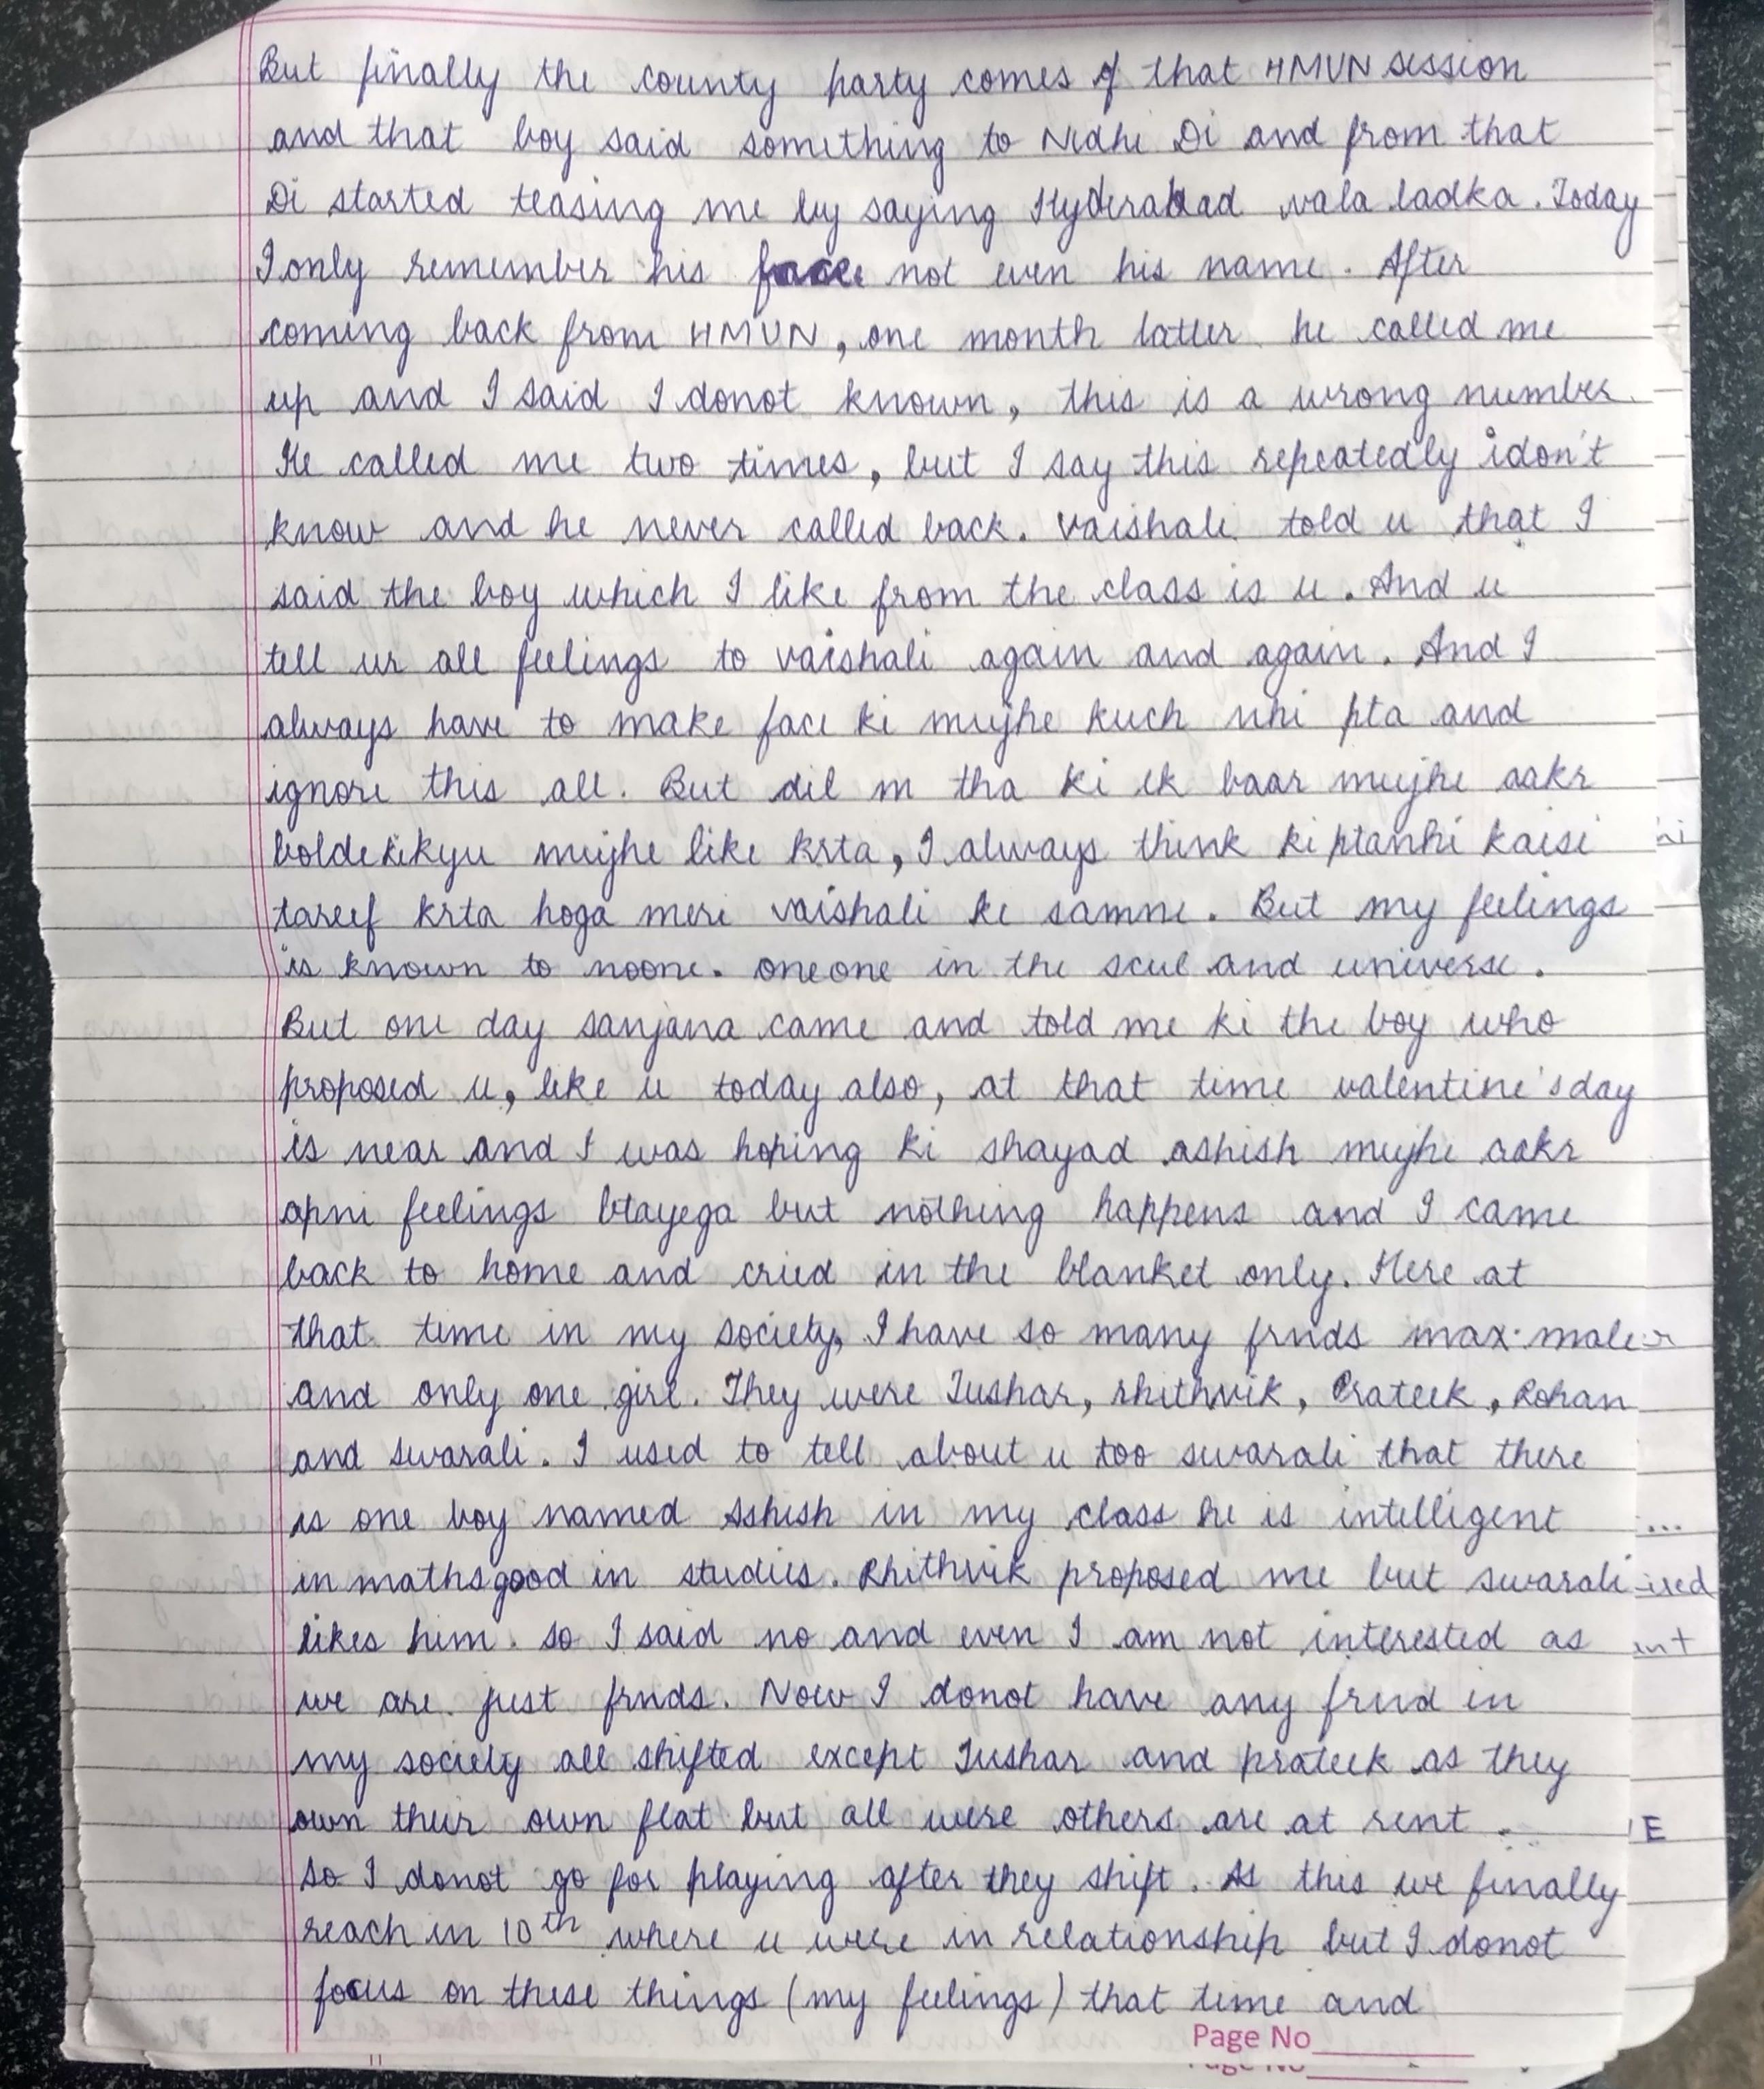 But finally the county party comes of that HMUN session
and that boy said something to Nidhi Di and from that
Di started teasing me by saying Hyderabad wala ladka. Today
I only remember his face not even his name. After
coming back from HMUN, one month latter he called me
up and I said I donot known, this is a wrong number.
He called me two times, but I say this repeatedly i don't
know and he never called back. Vaishali told u that I
said the boy which I like from the class is u. And u
tell ur all feelings to vaishali again and again. And I
always have to make face ki mujhe kuch nhi pta and
ignore this all. But dil m tha ki ek baar mujhe aakr
bolde ki kyu mujhe like krta, I always think ki pta nhi kaisi
tareef krta hoga meri vaishali ke samne. But my feelings
is known to noone. oneone in the scul and universe.
But one day sanjana came and told me ki the boy who
proposed u, like u today also, at that time valentine's day
is near and I was hoping ki shayad ashish mujhe aakr
apni feelings btayega but nothing happens and I came
back to home and cried in the blanket only. Here at
that time in my society, I have so many frnds max. male
and only one girl. They were Tushar, Rhithvik, Prateek, Rohan
and swarali. I used to tell about u too swarali that there
is one boy named Ashish in my class he is intelligent
in maths good in studies. Rhithvik proposed me but swarali
likes him. so I said no and even I am not interested as
we are just frnds. Now I donot have any frnd in
my society all shifted except Tushar and prateek as they
own their own flat but all were others are at rent.
E
So I donot go for playing after they shift. As this we finally
reach in 10th where u were in relationship but I donot
focus on these things (my feelings) that time and
Page No